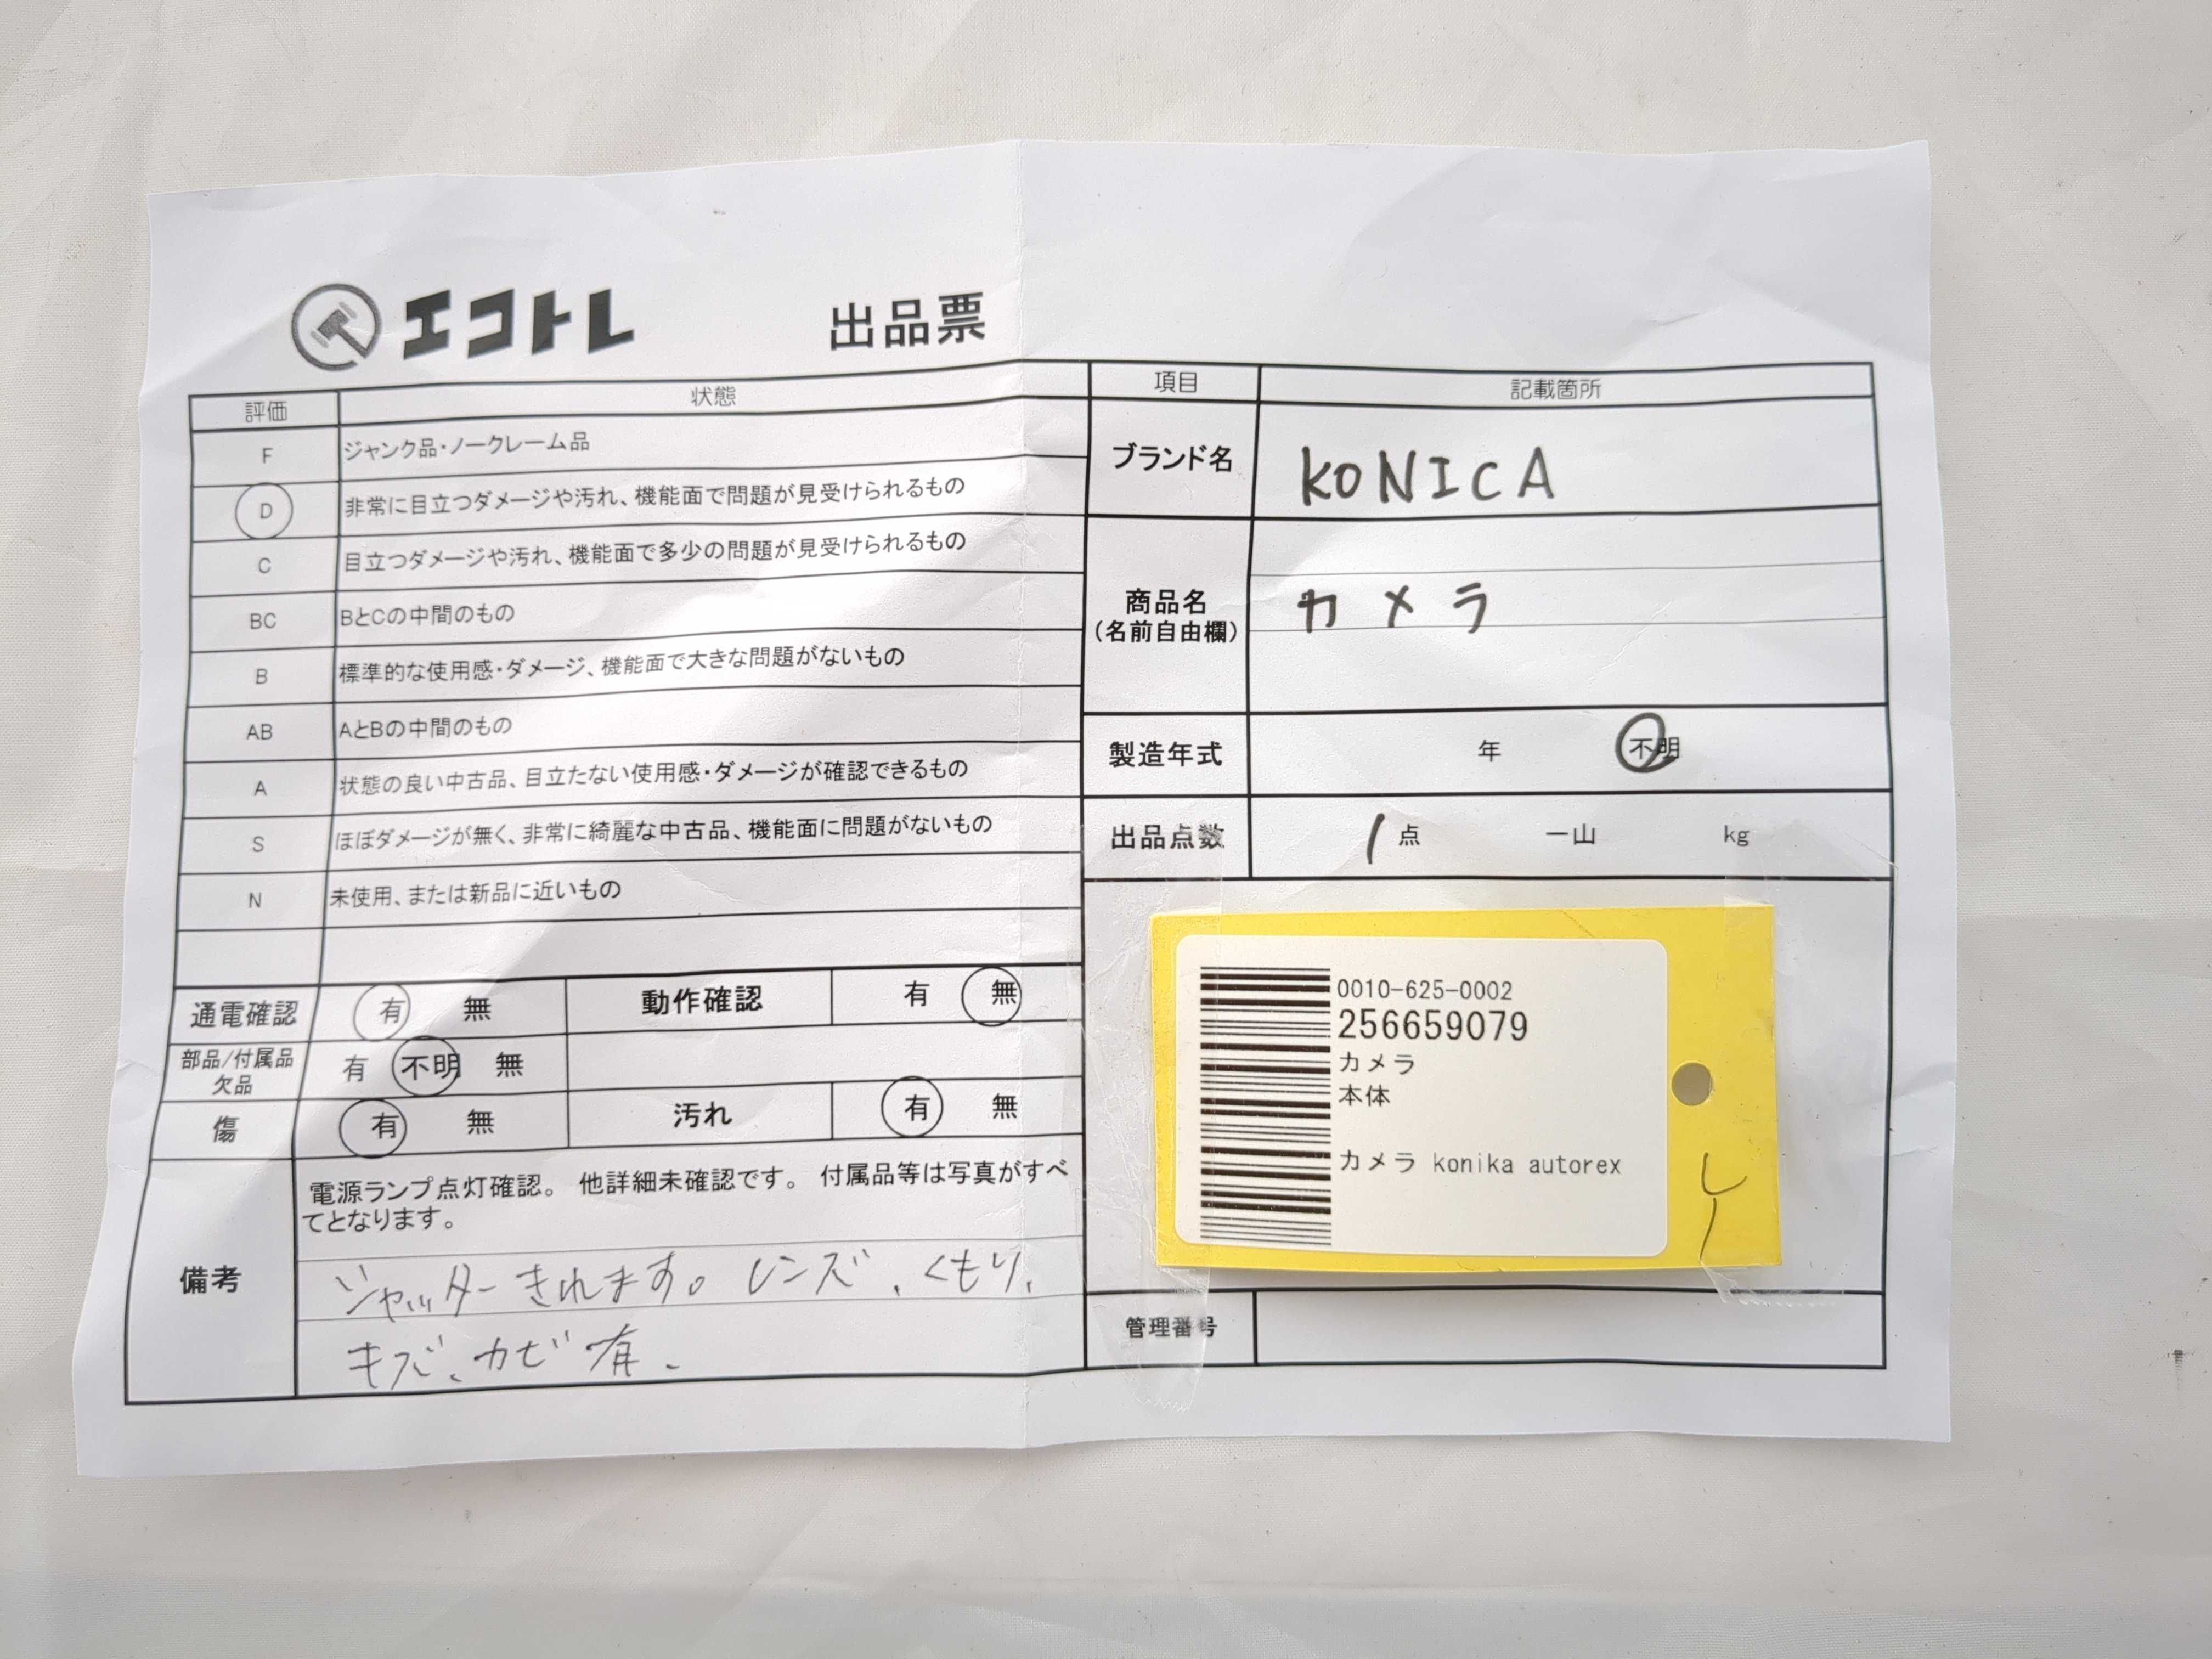 エコトレ 出品票
評価 状態
F ジャンク品・ノークレーム品
D 非常に目立つダメージや汚れ、機能面で問題が見受けられるもの
C 目立つダメージや汚れ、機能面で多少の問題が見受けられるもの
BC BとCの中間のもの
B 標準的な使用感・ダメージ、機能面で大きな問題がないもの
AB AとBの中間のもの
A 状態の良い中古品、目立たない使用感・ダメージが確認できるもの
S ほぼダメージが無く、非常に綺麗な中古品、機能面に問題がないもの
N 未使用、または新品に近いもの
通電確認 有 無 動作確認 有 無
部品/付属品
欠品 有 不明 無
傷 有 無 汚れ 有 無
備考
電源ランプ点灯確認。 他詳細未確認です。 付属品等は写真がすべ
てとなります。
シャッターきれます。レンズ、くもり、
キズ、カビ有、
項目 記載箇所
ブランド名 KONICA
商品名
(名前自由欄)
カメラ
製造年式 年 不明
出品点数 1点 一山 kg
0010-625-0002
256659079
カメラ
本体
カメラ konika autorex
管理番号